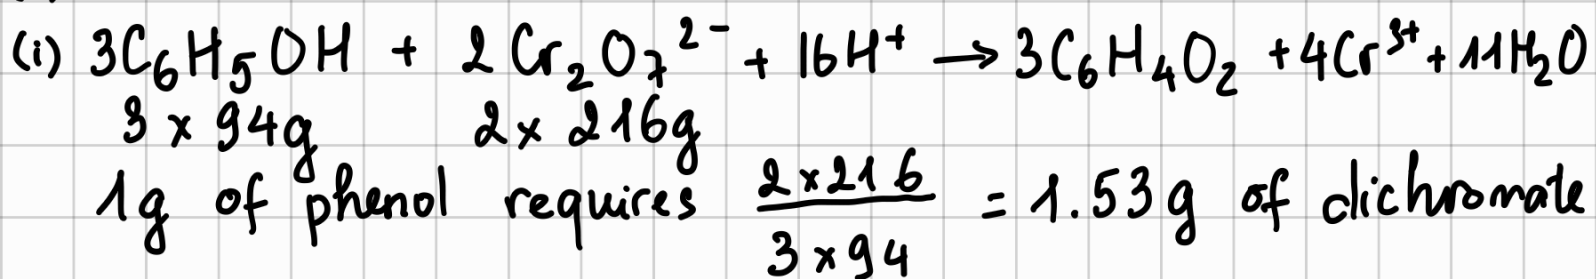 (i) 3C₆H₅OH + 2Cr₂O₇²⁻ + 16H⁺ → 3C₆H₄O₂ + 4Cr³⁺ + 11H₂O
3 × 94g 2 × 216g
1g of phenol requires (2×216)/(3×94) = 1.53g of dichromate